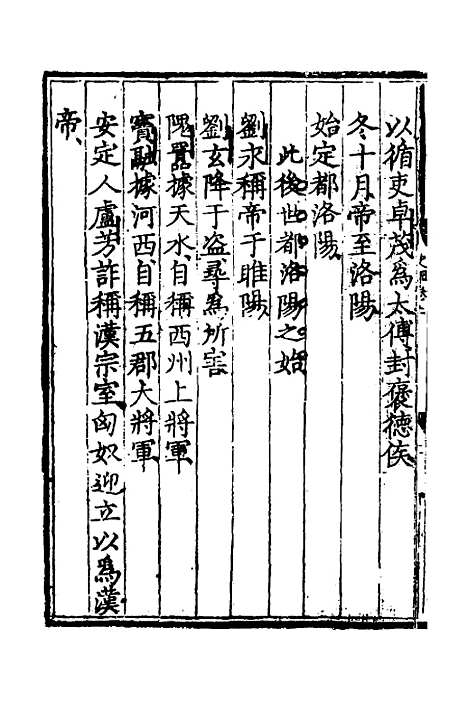 以循吏卓茂為太傅封褒德侯
冬十月帝至洛陽
始定都洛陽
此後世都洛陽之始
劉永稱帝于睢陽
劉玄降于盗尋為所害
隗囂據天水自稱西州上將軍
竇融據河西自稱五郡大將軍
安定人盧芳詐稱漢宗室匈奴迎立以為漢
帝